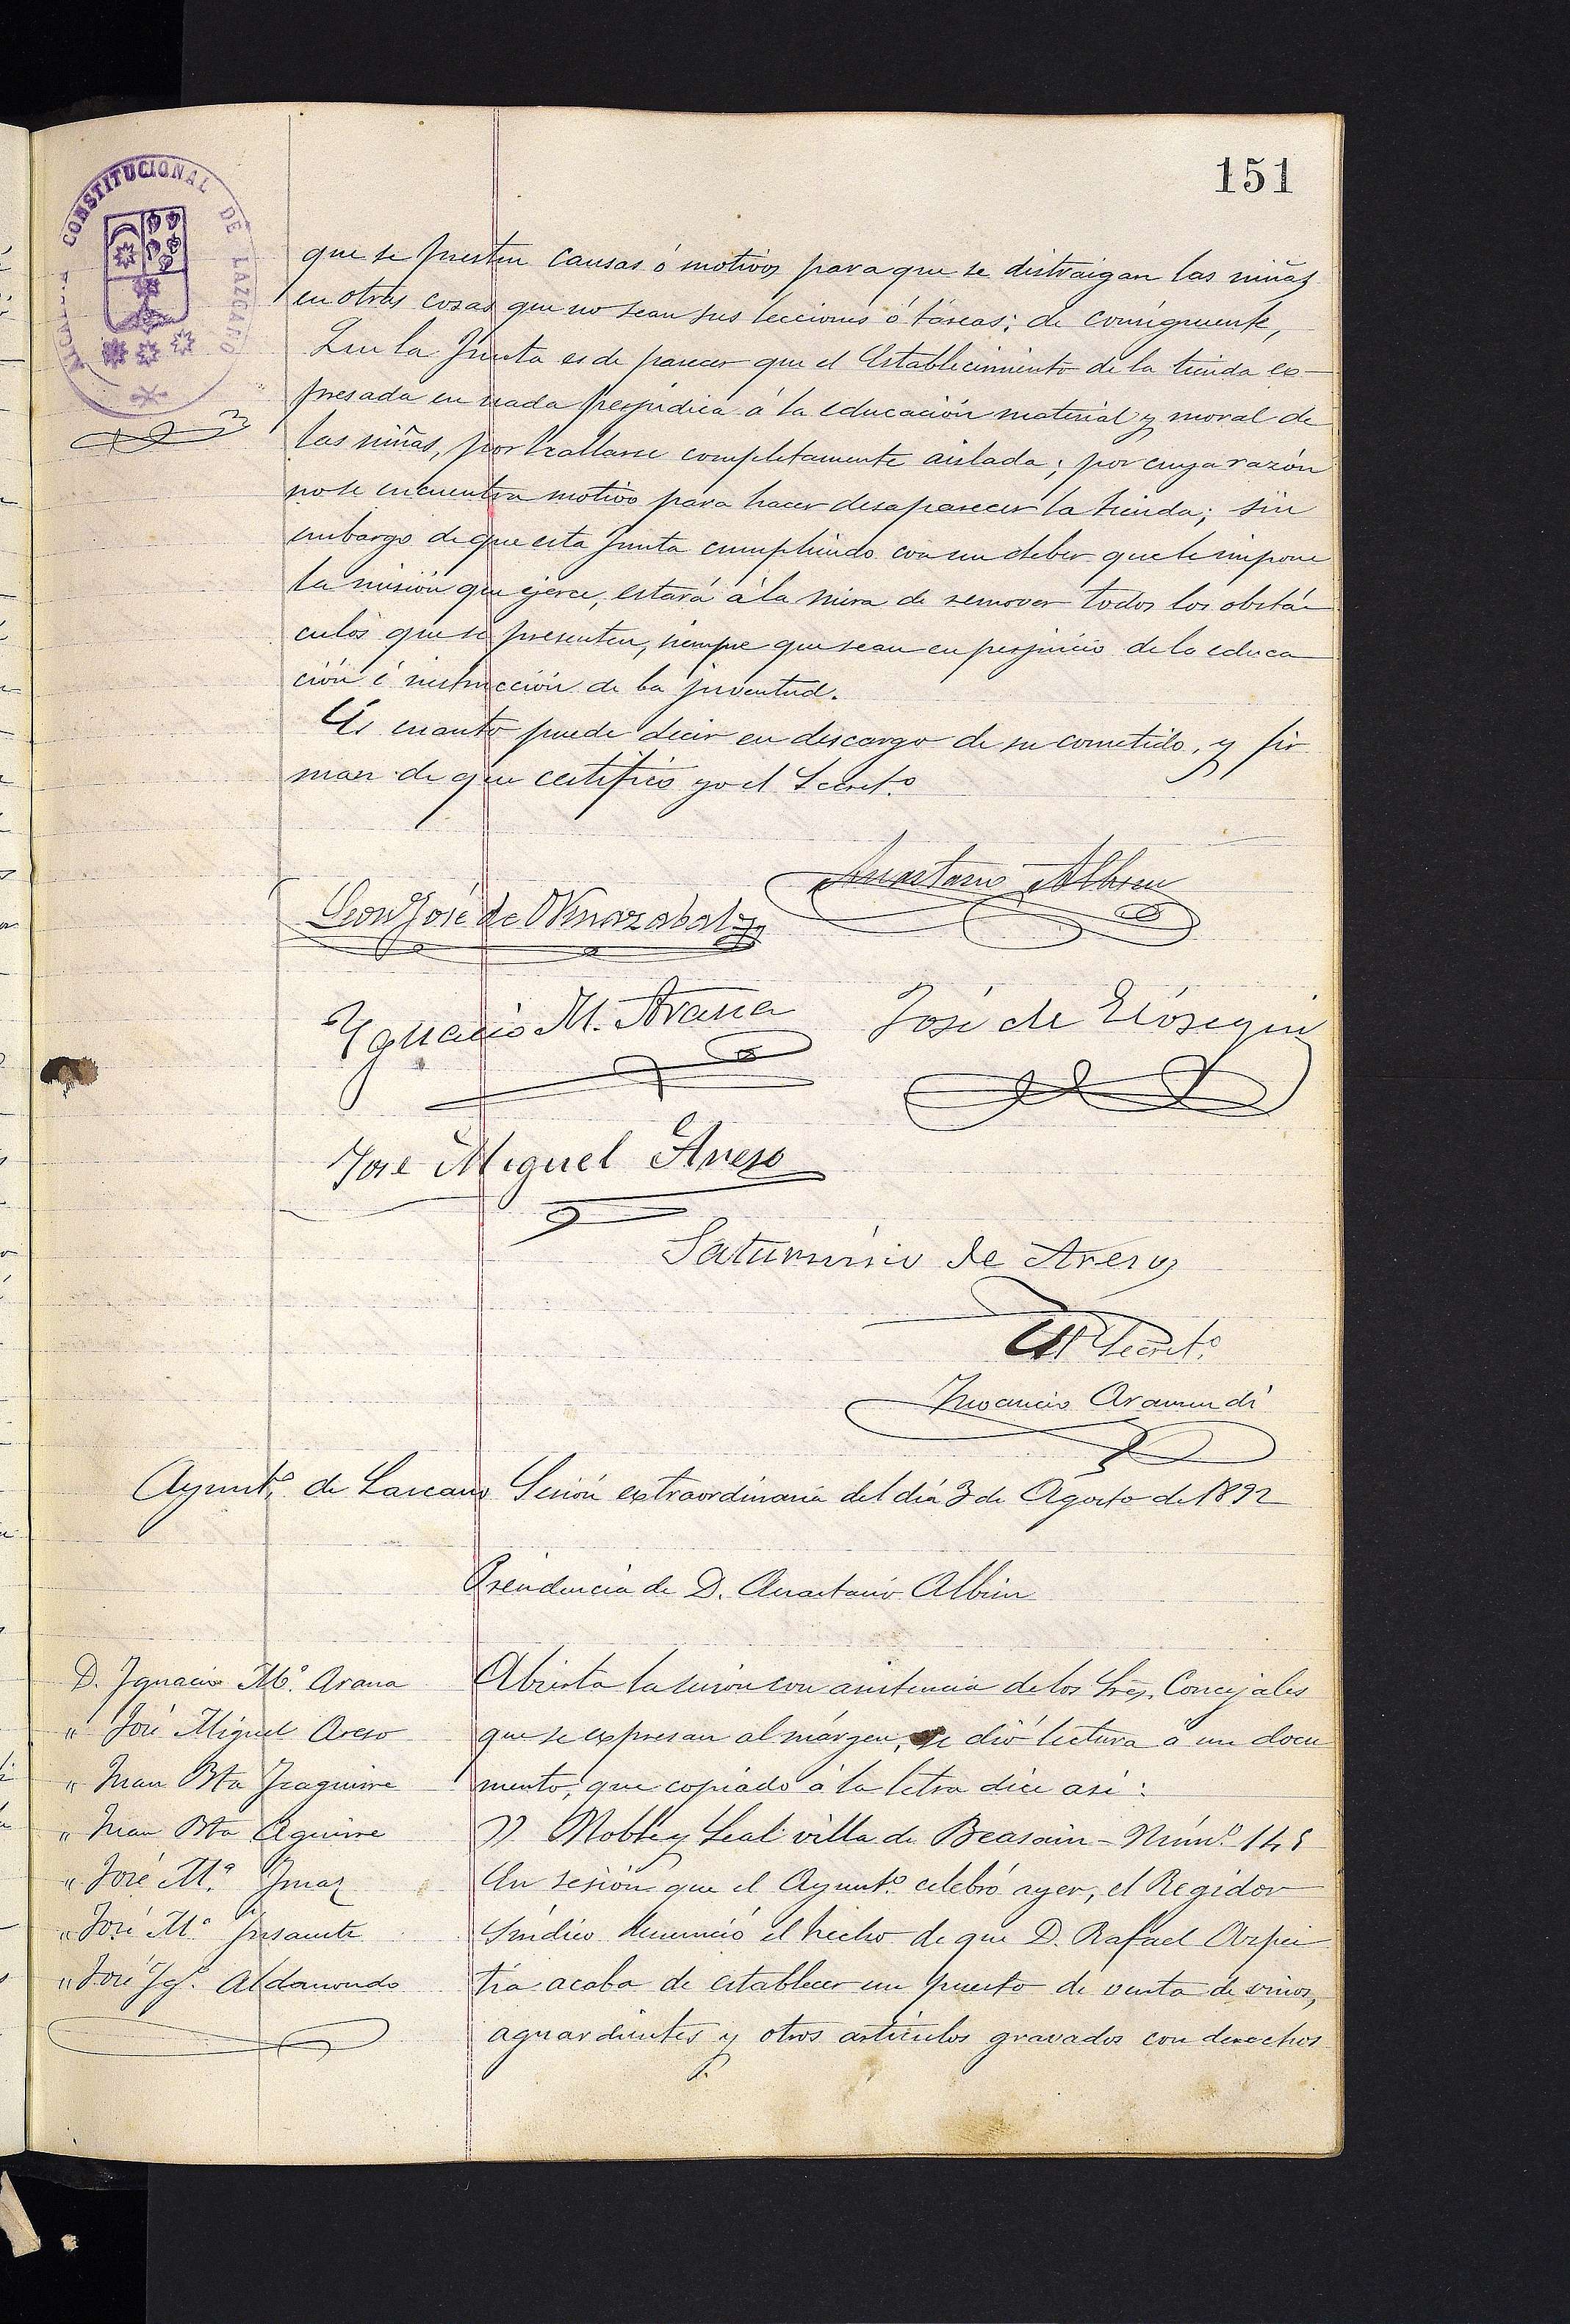 151
ALCALDIA CONSTITUCIONAL DE LAZCANO
que se presten causas ó motivos para que se distraigan las niñas
en otras cosas que no sean sus lecciones ó táreas; de consiguiente,
Que la Junta es de parecer que el Establecimiento de la tienda ex-
presada en nada perjudica á la educación material y moral de
las niñas, por hallarse completamente aislada; por cuya razón
no se encuentra motivo para hacer desaparecer la tienda; sin
embargo de que esta Junta cumpliendo con un deber que le impone
la misión que ejerce, estará á la mira de remover todos los obstá-
culos que se presenten, siempre que sean en perjuicio de la educa-
ción é instrucción de la juventud.
Es cuanto puede decir en descargo de su cometido, y fir-
man de que certifico yo el Secret.º
Anastasio Albisu
Leon José de Ormazabal
Ygnacio M. Arana José de Eiósegui
Jose Miguel Areso
Saturnino de Areso
El Secret.º
Inocencio Aramendi
Ayunt.º de Lazcano Sesión extraordinaria del día 3 de Agosto de 1892
Presidencia de D. Anastasio Albisu
D. Ignacio M.ª Arana
" José Miguel Areso
" Juan Bta Izaguirre
" Juan Bta Aguirre
" José M.ª Imaz
" José M.ª Insausti
" José Ig.º Aldasoro
Abierta la sesion con asistencia de los Sres. Concejales
que se expresan al márgen, se dió lectura á un docu
mento, que copiado á la letra dice asi:
" Noble y Leal villa de Beasain - Núm.º 145
En sesión que el Ayunt.º celebró ayer, el Regidor
Síndico denunció el hecho de que D. Rafael Azpei
tia acaba de establecer un puesto de venta de vinos,
aguardientes y otros artículos gravados con derechos